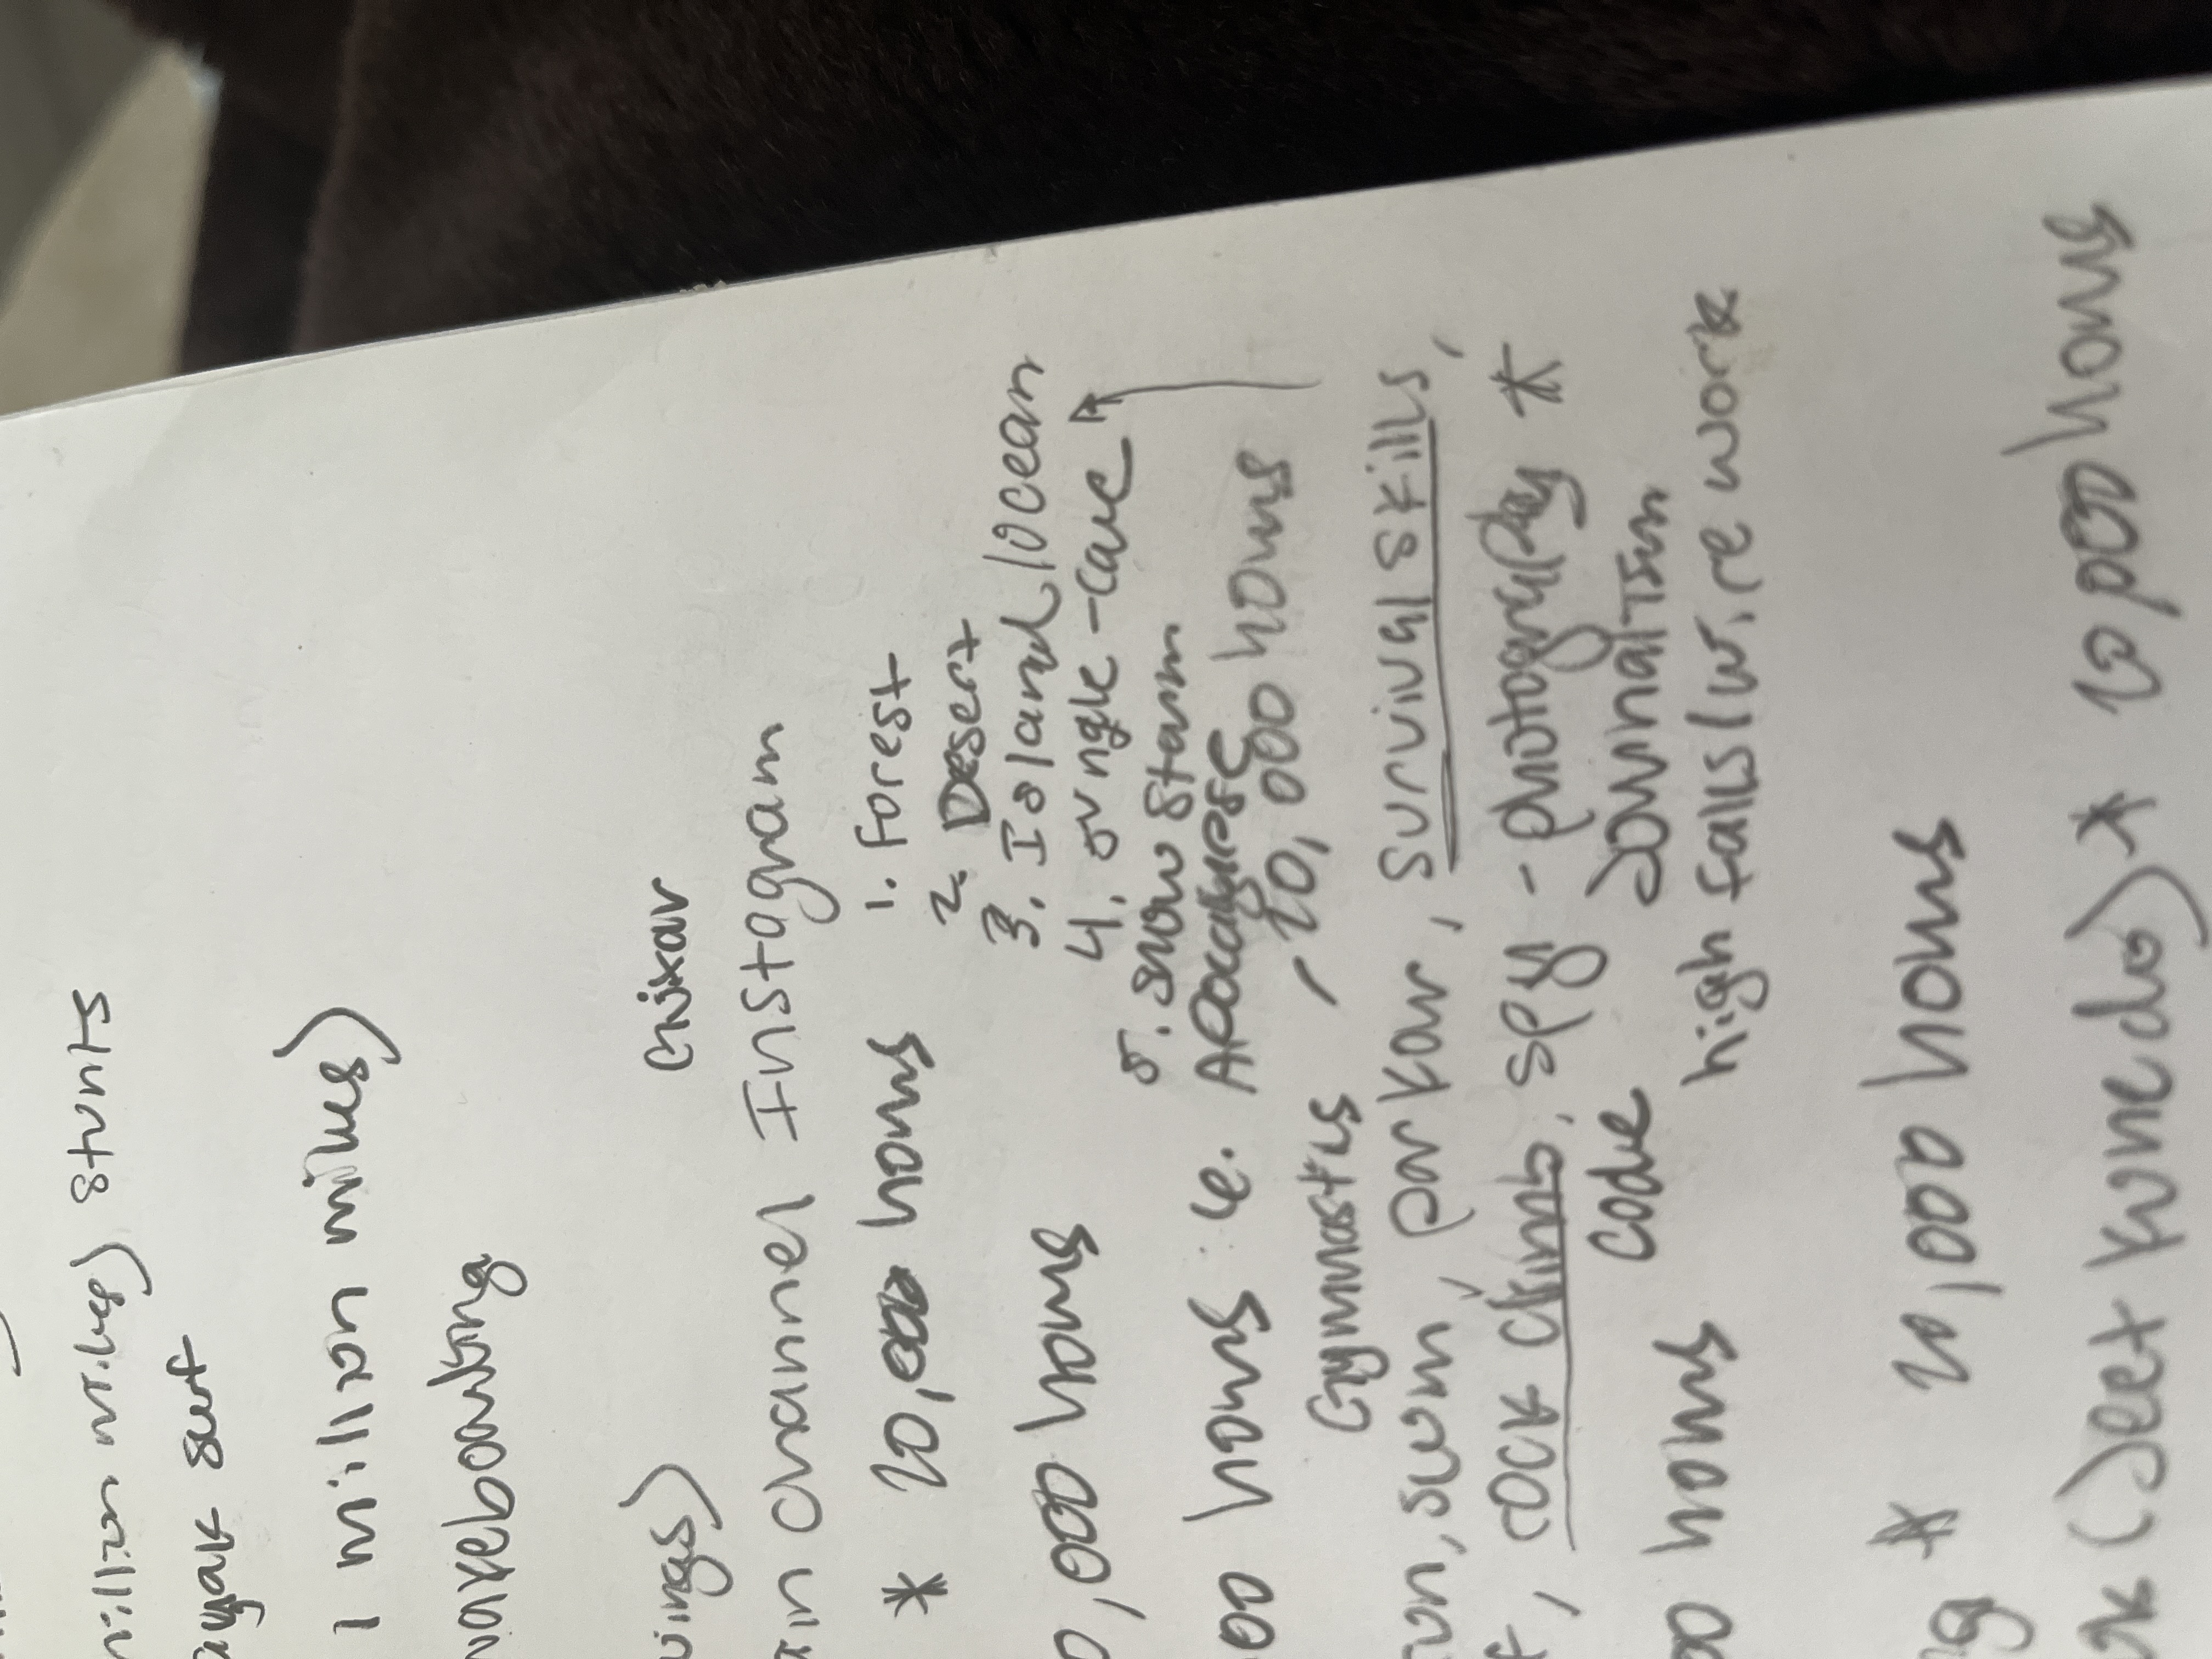 million miles) stunts
ayak surf
1 million miles)
wakeboarding
wings) guitar
ain channel Instagram
* 10,000 hours 1. Forest
2. Desert
0,000 hours 3. Island/ocean
4. jungle-cave"
5. snow storm
000 hours ie. Apocalypse
, 10,000 hours
Gymnastics
run, swim, parkour, survival skills,
f, rock climb, spy - photography *
code journalism
00 hours high falls/wire work
g * 10,000 hours
(Jeet kune do) * 10,000 hours